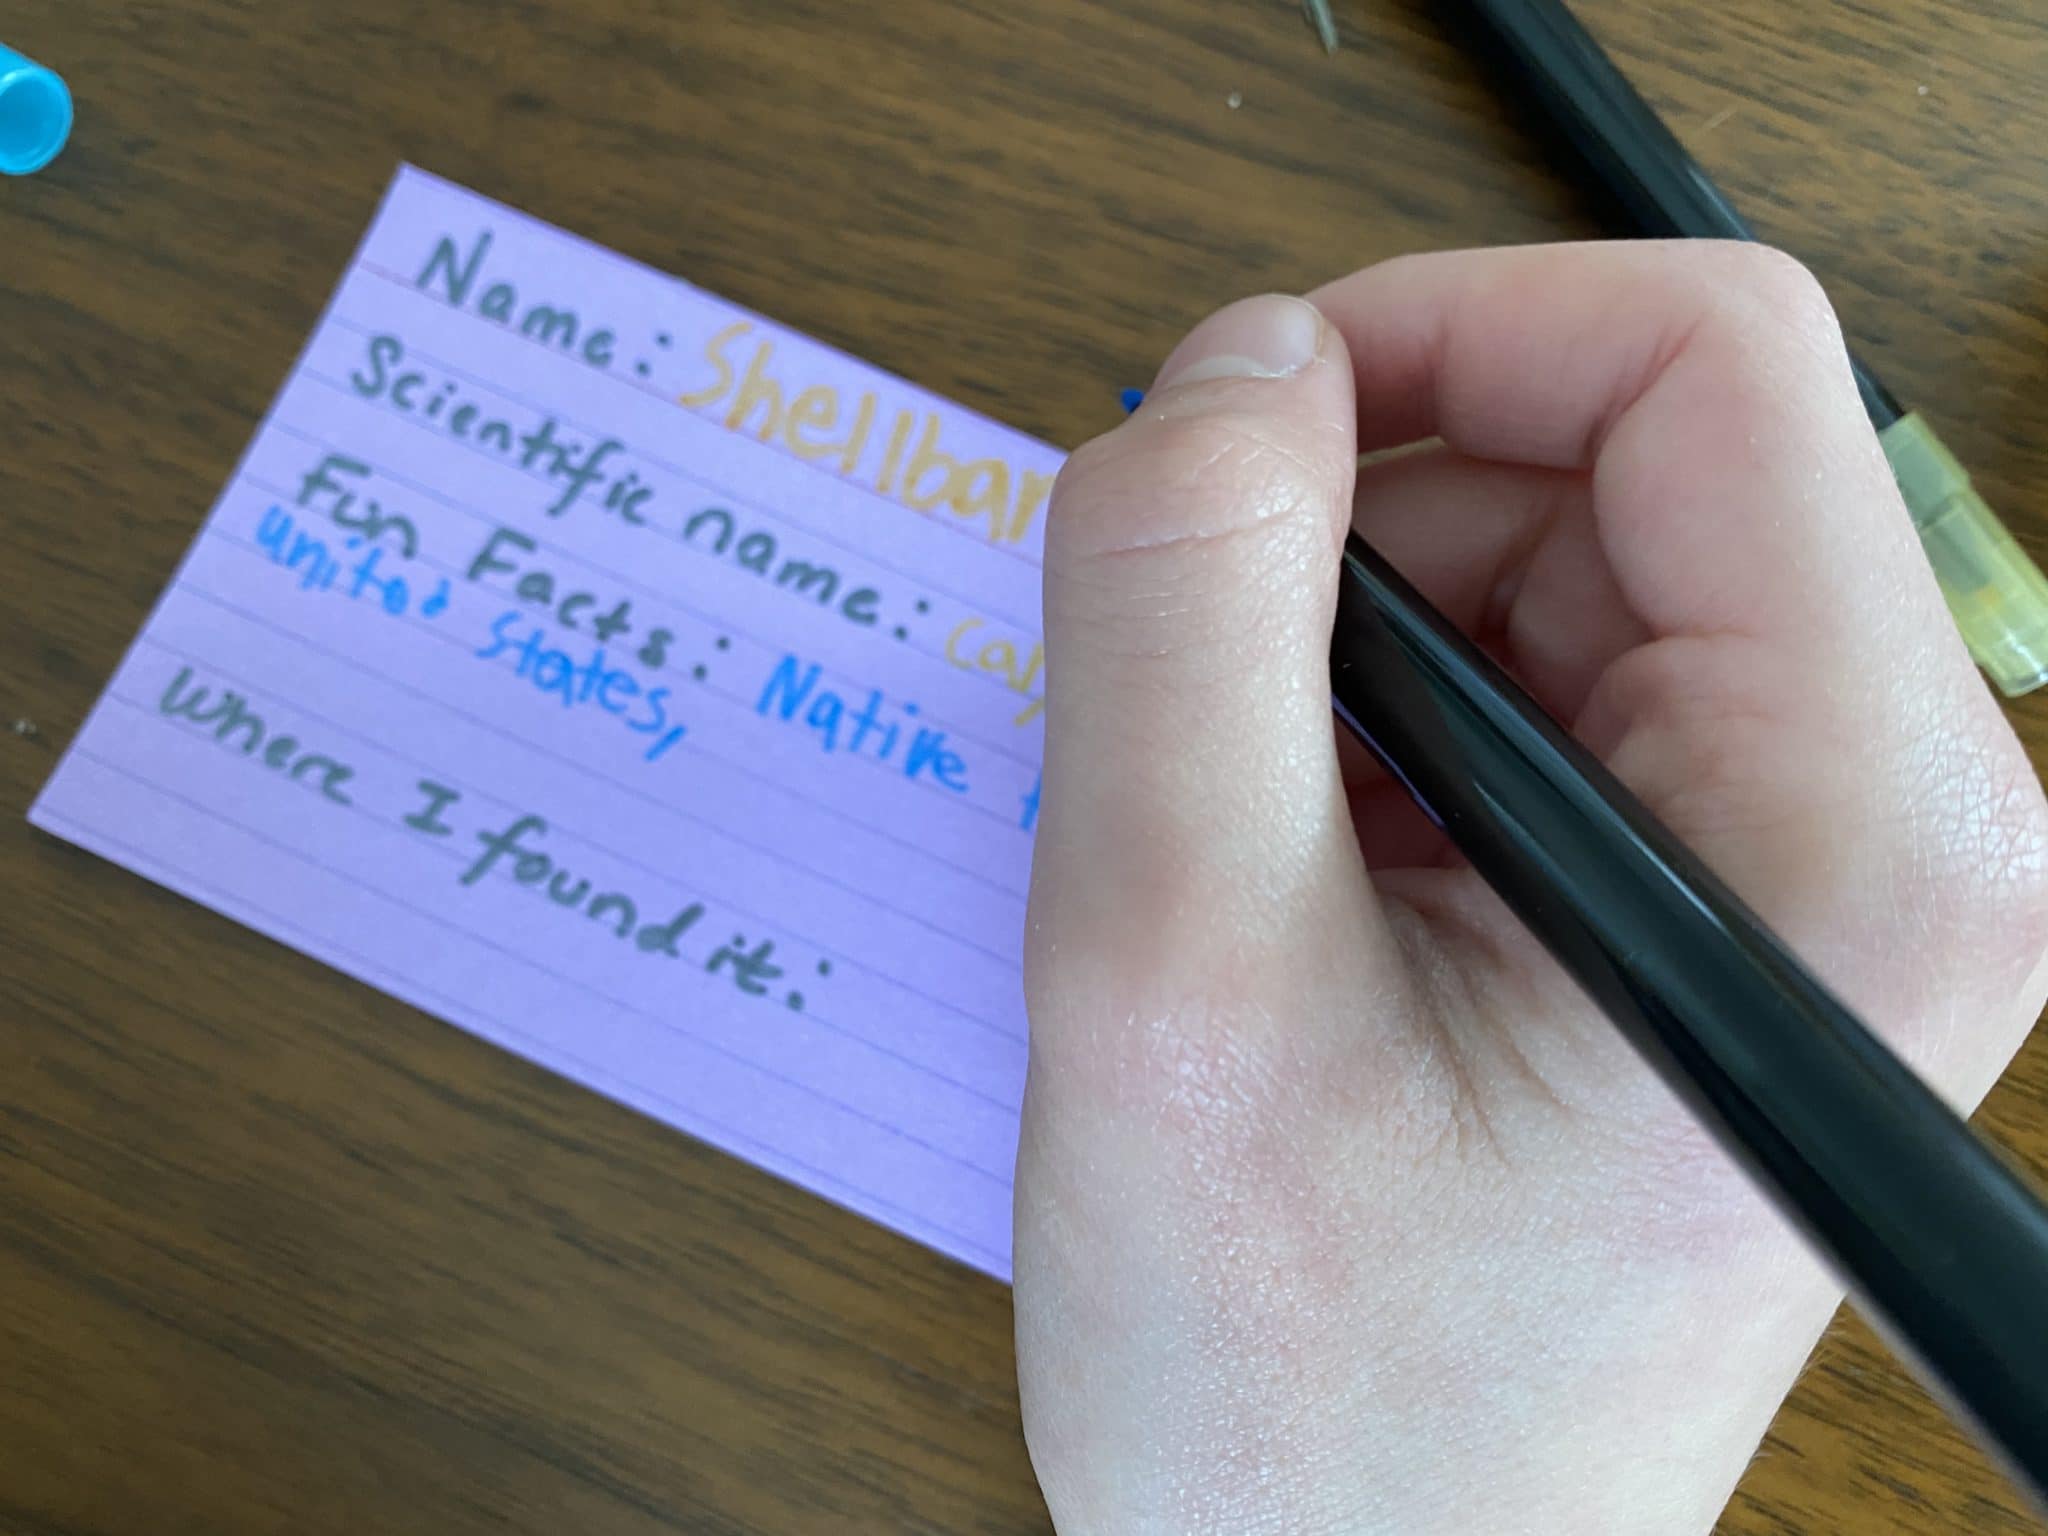 Name: Shellbar
Scientific name: Car
Fun Facts: Native
united states,
Where I found it: